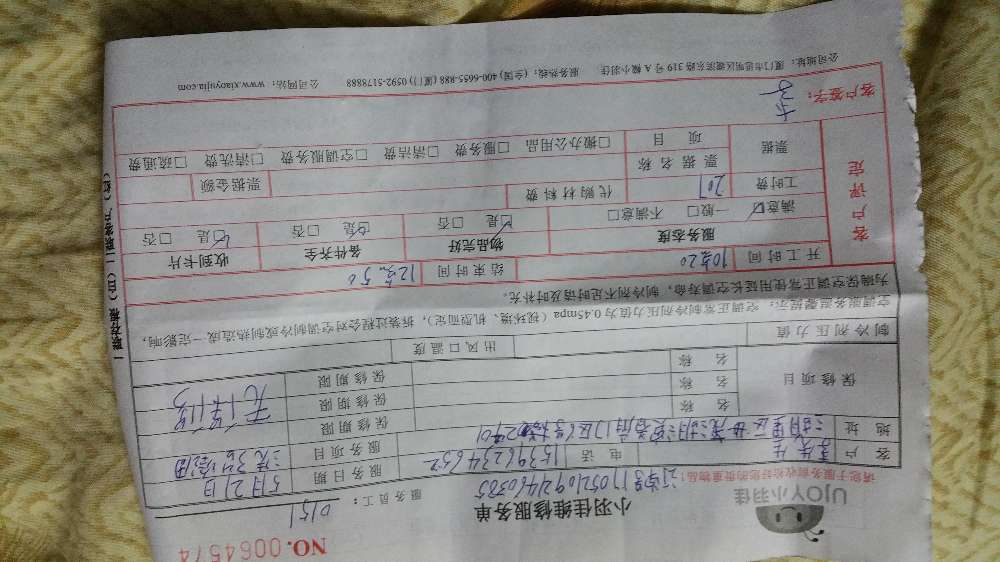 UJOY小羽佳
小羽佳维修服务单
NO.0064574
请您于服务前收拾好您的贵重物品!
服务员工: 0151
客户
电话
服务日期 5月21日
地址
服务项目
保修项目
名称
保修期限
名称
保修期限 无保修
名称
保修期限
制冷剂压力值
出风口温度
空调服务温馨提示: 空调正常制冷剂压力值为0.45mpa(视环境、机型而定),拆装过程会对空调制冷或制热造成一定影响,
为确保空调正常使用延长空调寿命,制冷剂不足时请及时补充。
客户评定
开工时间 10点20
结束时间 12点50
服务态度
物品完好
备件齐全
收到卡片
满意☑ 一般□ 不满意□
☑是 □否
☑是 □否
☑是 □否
工时费 201
代购材料费
票据
票据名称
票据金额
项目
□搬办公用品 □服务费 □清洁费 □空调服务费 □清洗费 □疏通费
客户签字:
公司地址: 厦门市思明区湖滨东路319号A幢小羽佳 服务热线: (全国) 400-6655-888 (厦门) 0592-5178888 公司网站: www.xiaoyujia.com
一联存根(白) 二联客户(红)